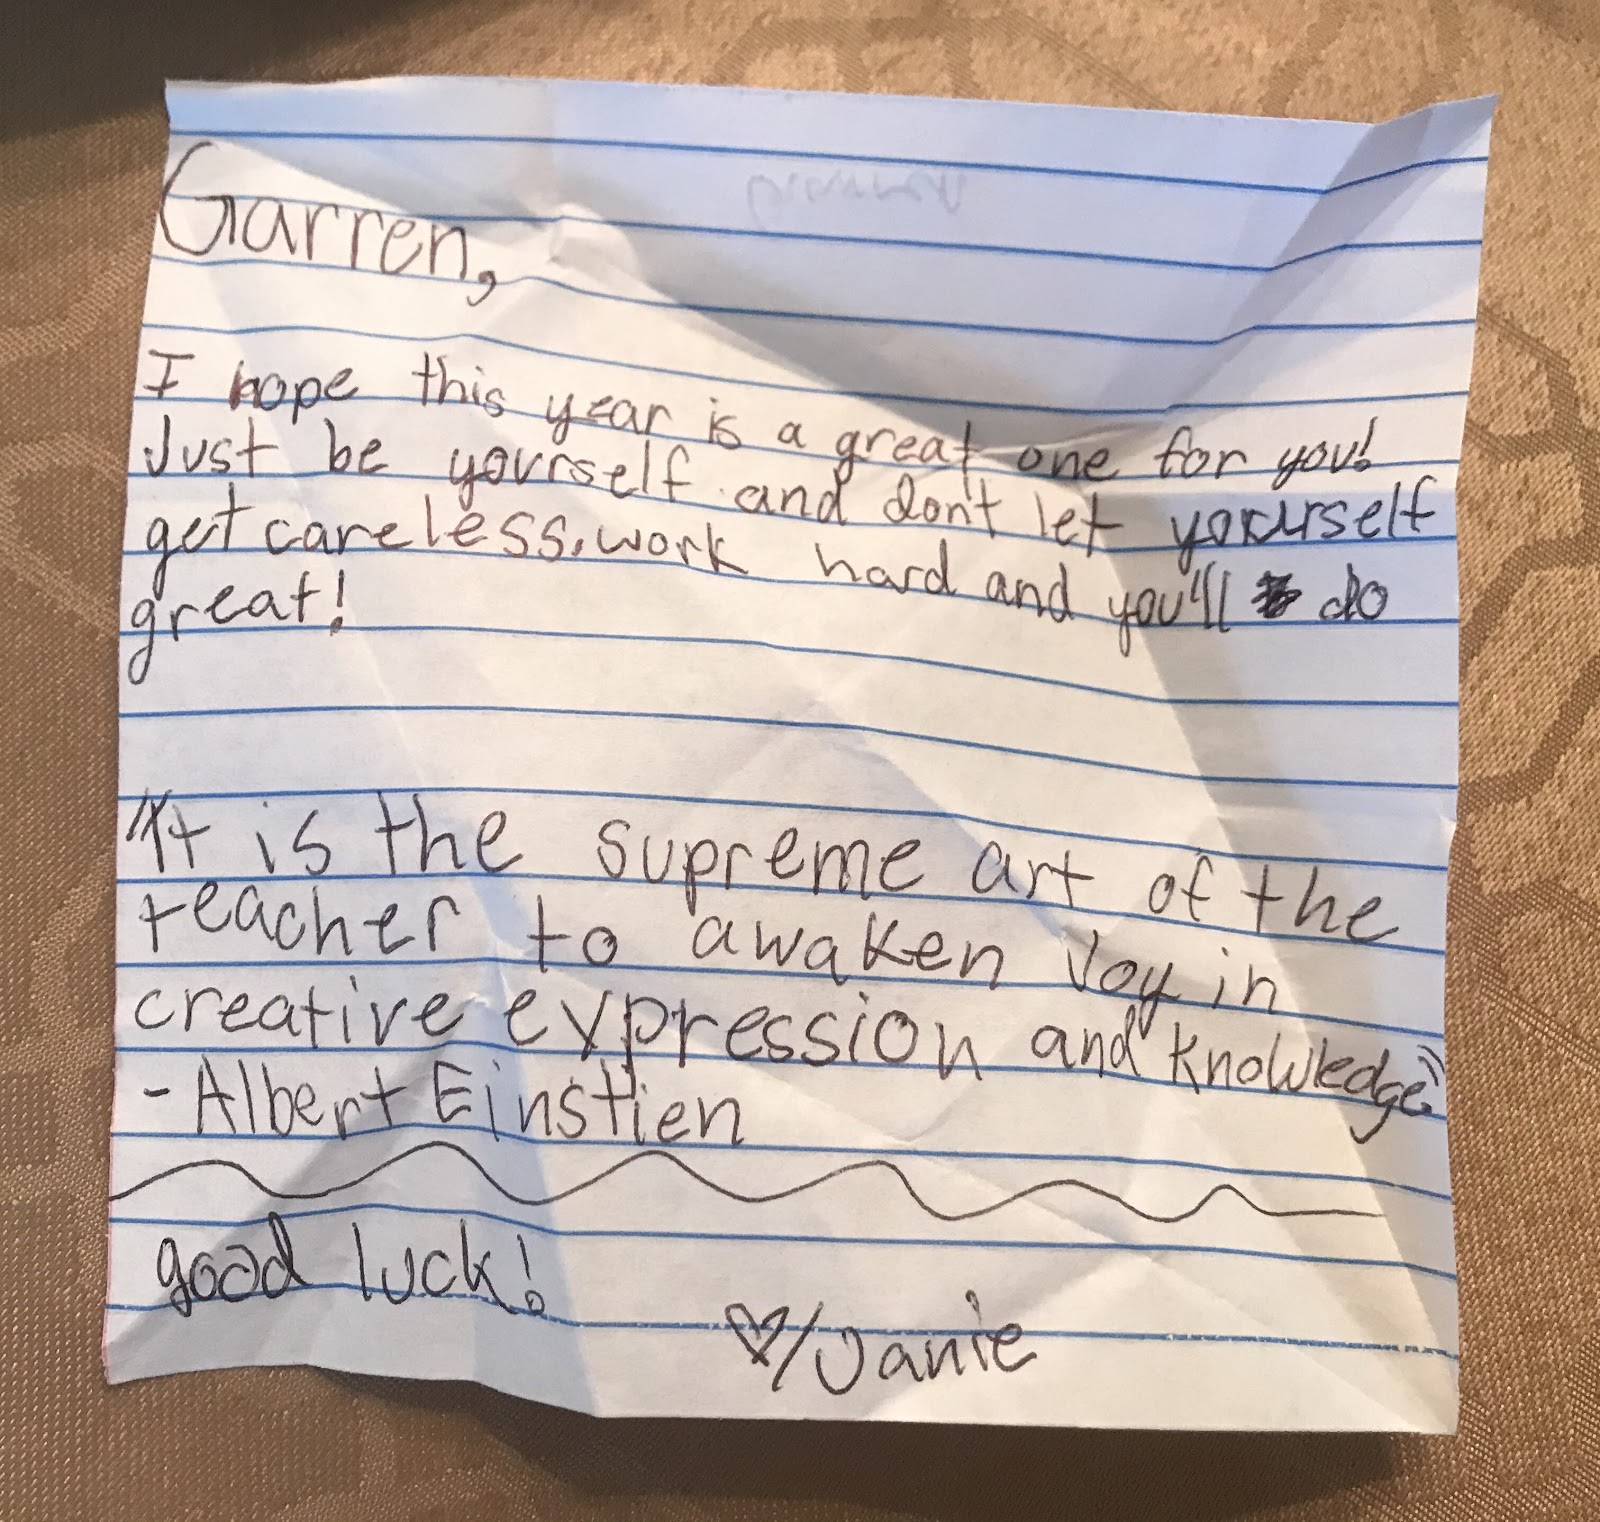 Garren,
I hope this year is a great one for you!
Just be yourself and dont let yourself
get careless. work hard and you'll do
great!
"It is the supreme art of the
teacher to awaken Joy in
creative expression and knowledge."
- Albert Einstien
good luck!
♡/Janie